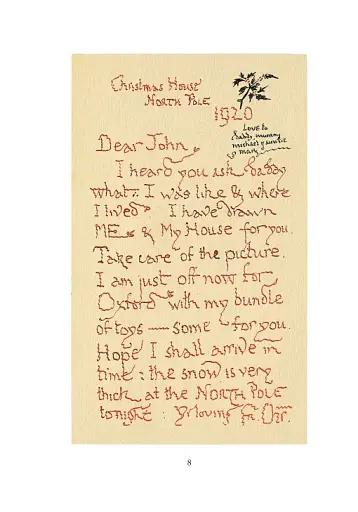 Christmas House
NORTH POLE
1920
Love to
daddy, mummy
michael & auntie
mary
Dear John
I heard you ask daddy
what I was like & where
I lived. I have drawn
ME & My House for you.
Take care of the picture.
I am just off now for
Oxford with my bundle
of toys — some for you.
Hope I shall arrive in
time: the snow is very
thick at the NORTH POLE
tonight: Yr loving Fr. Chr.
8